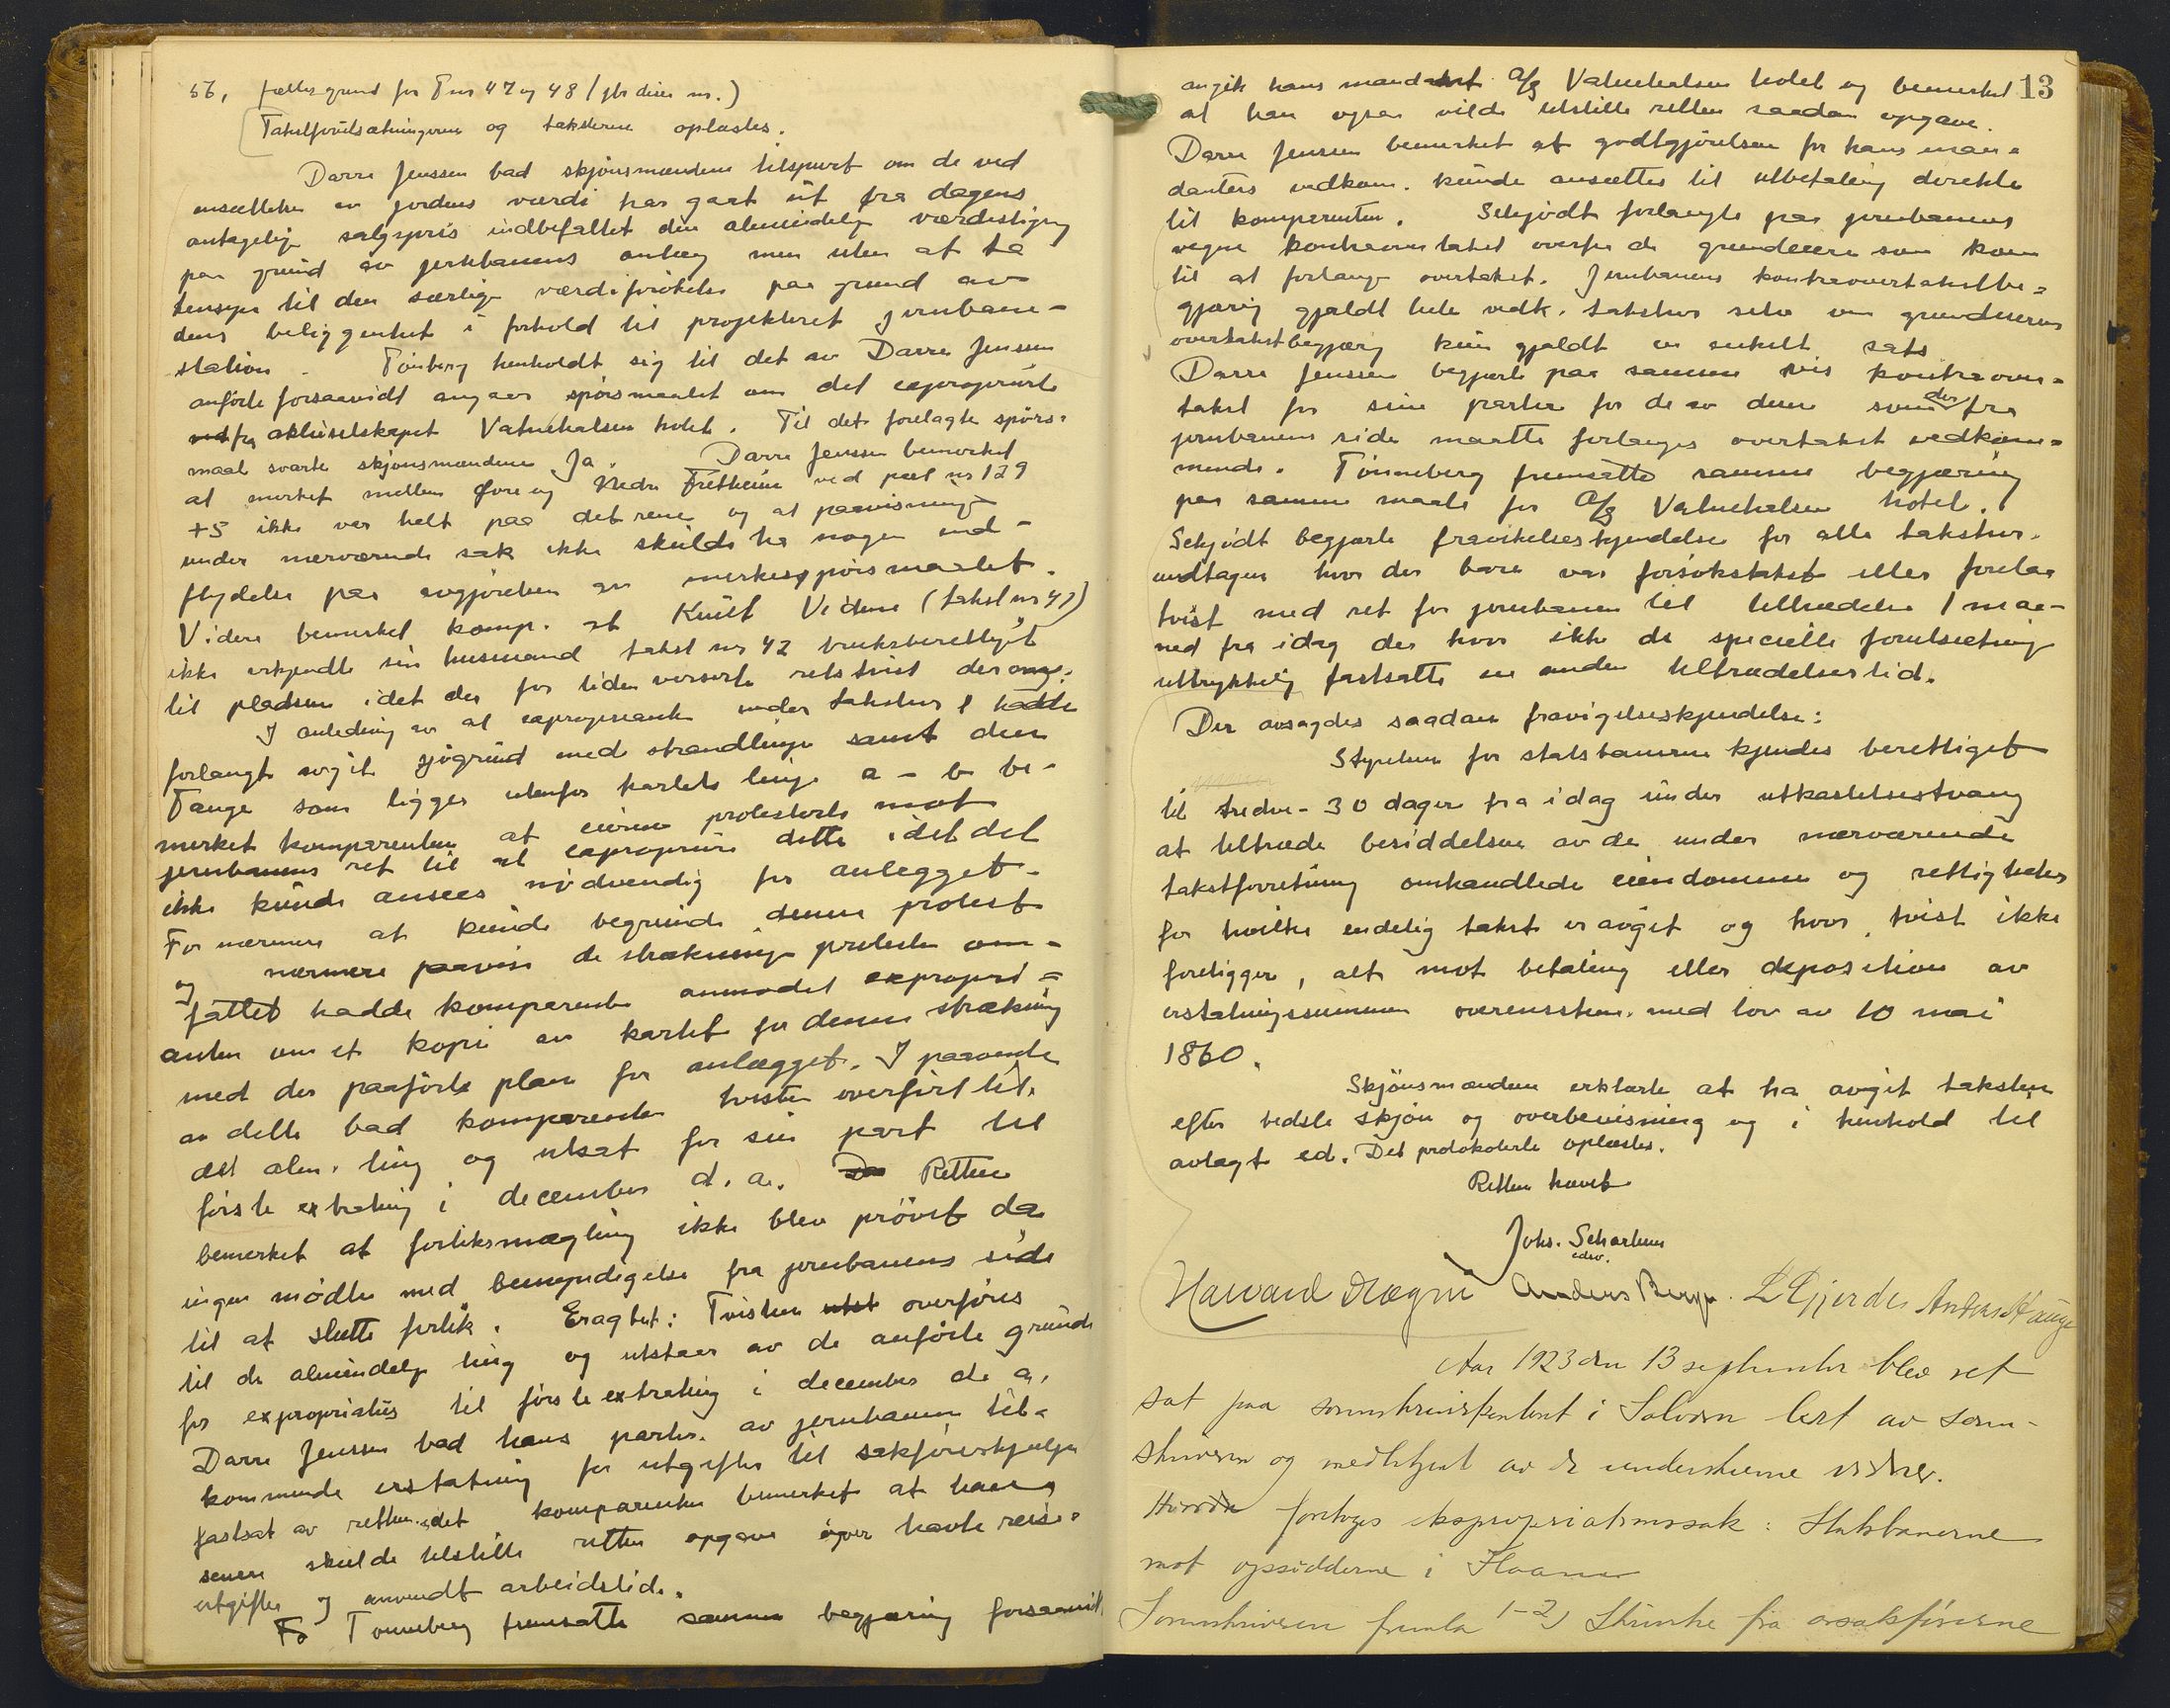 56, fællesgrund for Tnr 47 og 48 (gbr disse nr.)
Takstforutsætningerne og taksterne oplæstes.
Darre Jenssen bad skjønsmændene tilspurt om de ved
ansættelsen av jordens værdi har gaat ut fra dagens
antagelige salgspris indbefattet den almindelige værdistigning
paa grund av jernbanens anlæg men uten at ta
hensyn til den særlige værdiforøkelse paa grund av
dens beliggenhet i forhold til projekteret jernbane-
station. Tönberg henholdt sig til det av Darre Jenssen
anførte forsaavidt angaar spörsmaalet om det exproprierte
fra aktieselskapet Vatnehalsen hotel. Til det forelagte spörs-
maal svarte skjönsmændene Ja. Darre Jenssen bemerket
at merket mellem Øvre og Nedre Fretheim ved pæl nr 129
+5 ikke var helt paa det rene og at paavisningen
under nærværende sak ikke skulde ha nogen ind-
flydelse paa avgjörelsen av merkespörsmaalet.
Videre bemerket komp. at Knut Vidme (takst nr 47)
ikke erkjendte sin husmand takst nr 42 bruksberettiget
til pladsen idet der for tiden verserte retstvist derom.
I anledning av at expropriante under takstnr 1 hadde
forlangt avgit sjøgrund med strandlinje samt den
Tange som ligger utenfor kartets linje a - b be-
merket komparenten at eieren protesterte mot
jernbanens ret til at expropriere dette idet det
ikke kunde ansees nødvendig for anlegget.
For nærmere at kunde begrunde denne protest
og nærmere paavise de strækninger protesten om-
fattet hadde komparenten anmodet expropri-
anten om et kopi av kartet for denne strækning
med der paaförte plan for anlægget. I paavente
av dette bad komparenten tvisten overfört til
det alm. ting og utsat for sin part til
förste extrating i december d. a. Retten
bemerket at forliksmægling ikke blev prövet da
ingen mødte med bemyndigelse fra jernbanens side
til at slutte forlik. Eragtet: Tvisten overføres
til de almindelige ting og utstaar av de anförte grunde
for expropriatus til förste extrating i december d. a.
Darre Jenssen bad hans parter av jernbanen til-
kommende erstatning for utgifter til sakförerhjælp
fastsat av retten idet komparenten bemerket at han
senere skulde tilstille retten opgave over havte reise-
utgifter og anvendt arbeidstid.
Tonneberg fremsatte samme begjæring forsaavidt
13
angik hans mandant A/S Vatnehalsen hotel og bemerket
at han ogsaa vilde tilstille retten saadan opgave.
Darre Jenssen bemerket at godtgjörelsen for hans man-
danters vedkom. kunde ansættes til utbetaling direkte
til komparenten. Schjödt forlangte paa jernbanens
vegne kontraovertakst overfor de grundeiere som kom
til at forlange overtakst. Jernbanens kontraovertakstbe-
gjæring gjaldt hele vedk. takstnr selv om grundeierens
overtakstbegjæring kun gjaldt en enkelt sats
Darre Jenssen begjærte paa samme vis kontraover-
takst for sine parter for de av dem som der fra
jernbanens side maatte forlanges overtakst vedkom-
mende. Tönneberg fremsatte samme begjæring
paa samme maate for A/S Vatnehalsen hotel.
Schjödt begjærte fravikelseskjendelse for alle takstnr.
undtagen hvor der bare var forsökstakst eller forelaa
tvist med ret for jernbanen til tiltrædelse 1 maa-
ned fra idag der hvor ikke de specielle forutsætning
uttrykkelig fastsatte en anden tiltrædelsestid.
Der avsagdes saadan fravigelseskjendelse:
Styrelsen for statsbanerne kjendes berettiget
til tredve - 30 dager fra idag under utkastelsestvang
at tiltræde besiddelsen av de under nærværende
takstforretning omhandlede eiendomme og rettigheter
for hvilke endelig takst er avgit og hvor tvist ikke
foreligger, alt mot betaling eller deposition av
erstatningssummen overensstem. med lov av 10 mai
1860.
Skjönsmændene erklærte at ha avgit taksten
efter bedste skjön og overbevisning og i henhold til
avlagt ed. Det protokolerte oplæstes.
Retten hævet
Johs. Scharlum
edsv.
Havard Hægni Anders Berge. L Gjerde Anders Hauge
Aar 1923 den 13 september blev ret
sat paa sorenskriverkontoret i Solvorn leet av soren-
skriveren og medbetjent av de underskrevne vidner.
Hvorda foretoges ekspropriationssak: Statsbanerne
mot opsidderne i Flaam
Sorenskriveren fremla 1-2) Skrivelse fra o.r.sakförerne